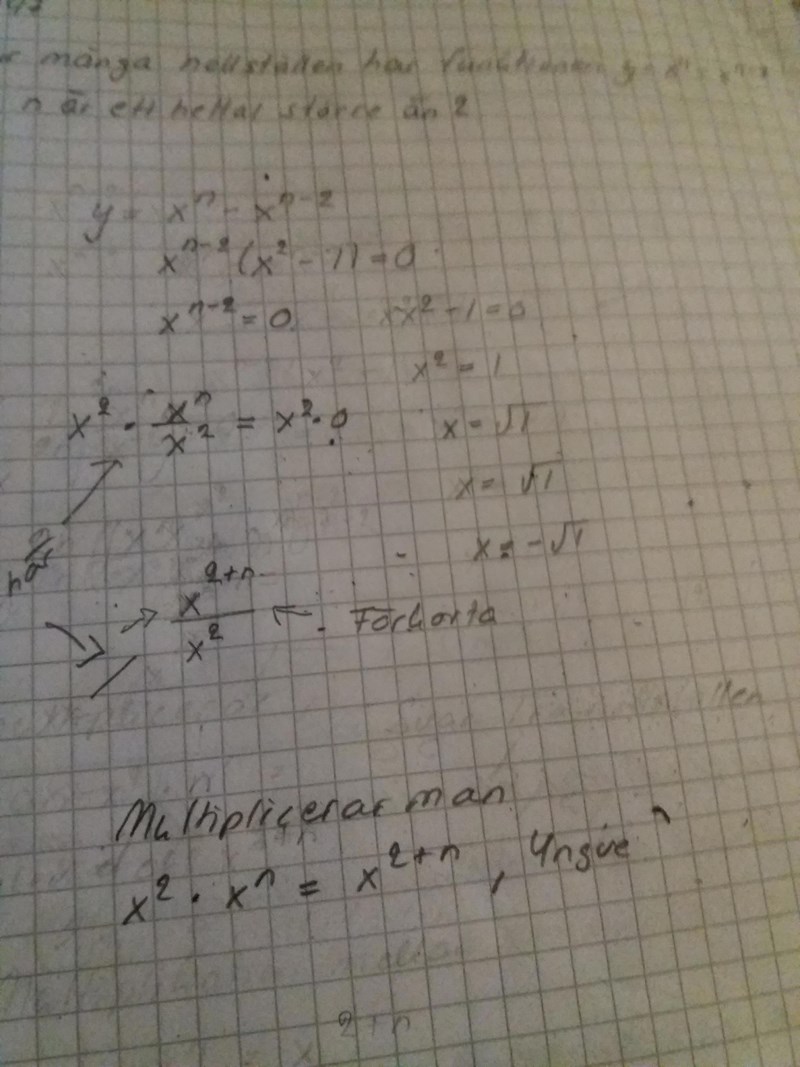 många nollställen har funktionen y = xⁿ - xⁿ⁻²
n är ett heltal större än 2
y = xⁿ - xⁿ⁻²
xⁿ⁻² (x² - 1) = 0
xⁿ⁻² = 0 x² - 1 = 0
x² = 1
x² · xⁿ/x² = x² · 0 x = √1
x = √1
x = -√1
när
x²⁺ⁿ/x² Förkorta
Multiplicerar man
x² · xⁿ = x²⁺ⁿ, Yngve
2+n
x